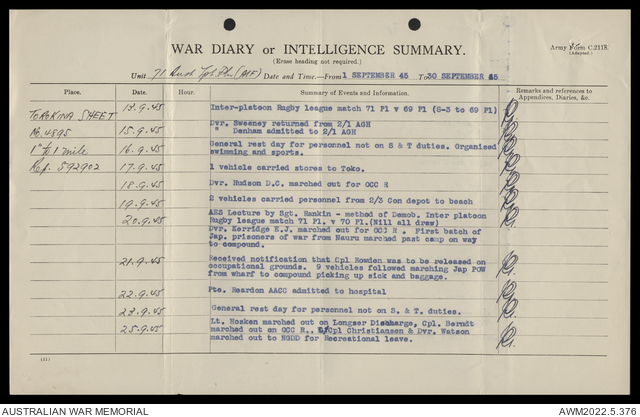 Army Form C.2118.
(Adapted.)
WAR DIARY or INTELLIGENCE SUMMARY.
(Erase heading not required.)
Unit 71 Aust Tpt Pln (AIF) Date and Time.—From 1 SEPTEMBER 45 To 30 SEPTEMBER 45
Place. Date Hour. Summary of Events and Information. Remarks and references to
Appendices, Diaries, &c.
TOROKINA SHEET 13.9.45 Inter-platoon Rugby league match 71 Pl v 69 Pl (8-3 to 69 Pl)
No. 4895 15.9.45 Dvr. Sweeney returned from 2/1 AGH
" Denham admitted to 2/1 AGH
1" to 1 mile 16.9.45 General rest day for personnel not on S & T duties. Organised
swimming and sports.
Ref. 592902 17.9.45 1 vehicle carried stores to Toko.
18.9.45 Dvr. Hudson D.C. marched out for OCC R
19.9.45 2 vehicles carried personnel from 2/3 Con depot to beach
20.9.45 AES Lecture by Sgt. Rankin - method of Demob. Inter platoon
Rugby league match 71 Pl. v 70 Pl.(Nill all draw)
Dvr. Kerridge E.J. marched out for OCC R . First batch of
Jap. prisoners of war from Nauru marched past camp on way
to compound.
21.9.45 Received notification that Cpl Rowden was to be released on
occupational grounds. 9 vehicles followed marching Jap POW
from wharf to compound picking up sick and baggage.
22.9.45 Pte. Reardon AACC admitted to hospital
23.9.45 General rest day for personnel not on S. & T. duties.
25.9.45 Lt. Hosken marched out on Longser Discharge, Cpl. Berndt
marched out on OCC R., L/Cpl Christiansen & Dvr. Watson
marched out to NGDD for Recreational leave.
AUSTRALIAN WAR MEMORIAL AWM2022.5.376